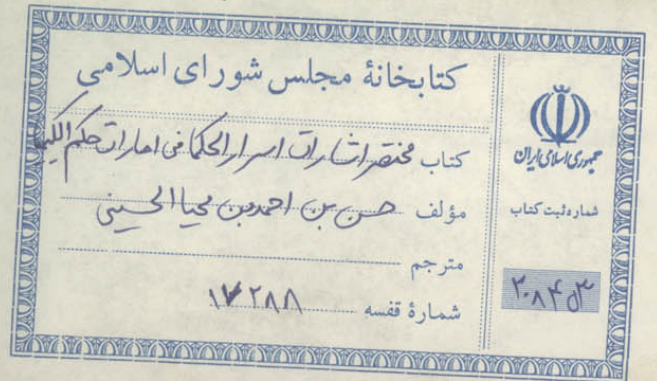 کتابخانهٔ مجلس شورای اسلامی
کتاب مختصر اشارات اسرار الحکما فی امارات حکم
مؤلف حسن بن احمد بن محیا الحسینی
مترجم
شمارهٔ قفسه ۱۷۲۸۸
جمهوری اسلامی ایران
شماره ثبت کتاب